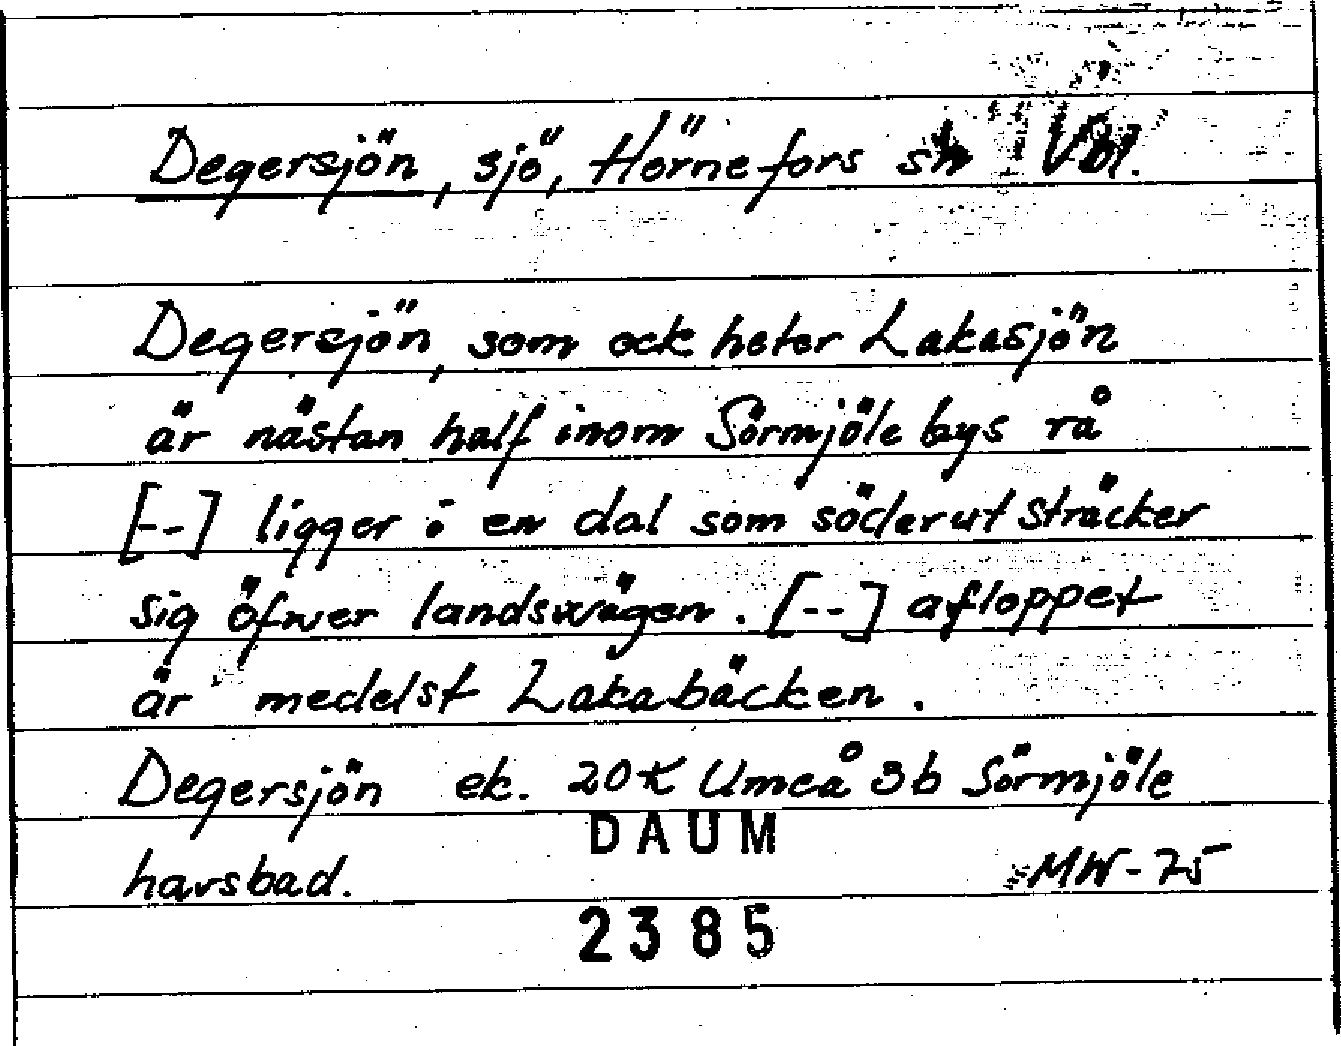 Degersjön, sjö, Hörnefors sn Vbl.
Degersjön, som ock heter Lakasjön
är nästan half inom Sörmjöle bys rå
[--] ligger i en dal som söderut sträcker
sig öfwer landswägen. [--] afloppet
är medelst Lakabäcken.
Degersjön ek. 20K Umeå 3b Sörmjöle
havsbad. MW-75
DAUM
2385